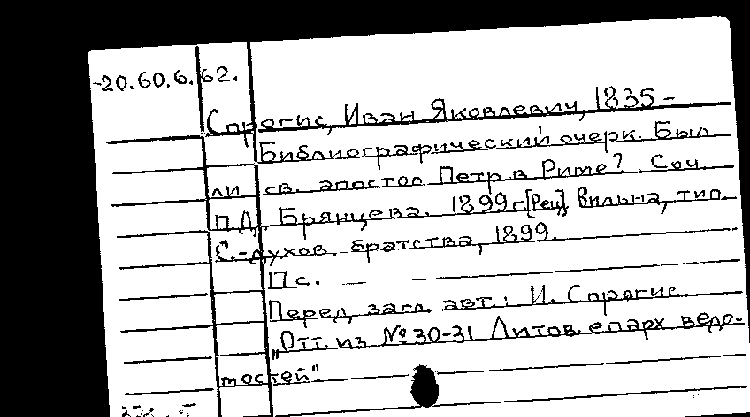 -20.60.6.62.
Спрогис, Иван Яковлевич, 1835-
Библиографический очерк. Был
ли св. апостол Петр в Риме? Соч.
П.Д. Брянцева. 1899 г. [Рец]. Вильна, тип.
С.-духов. братства, 1899.
17 с. —
Перед загл. авт.: И. Спрогис.
"Отт. из № 30-31 Литов. епарх. ведо-
мостей"